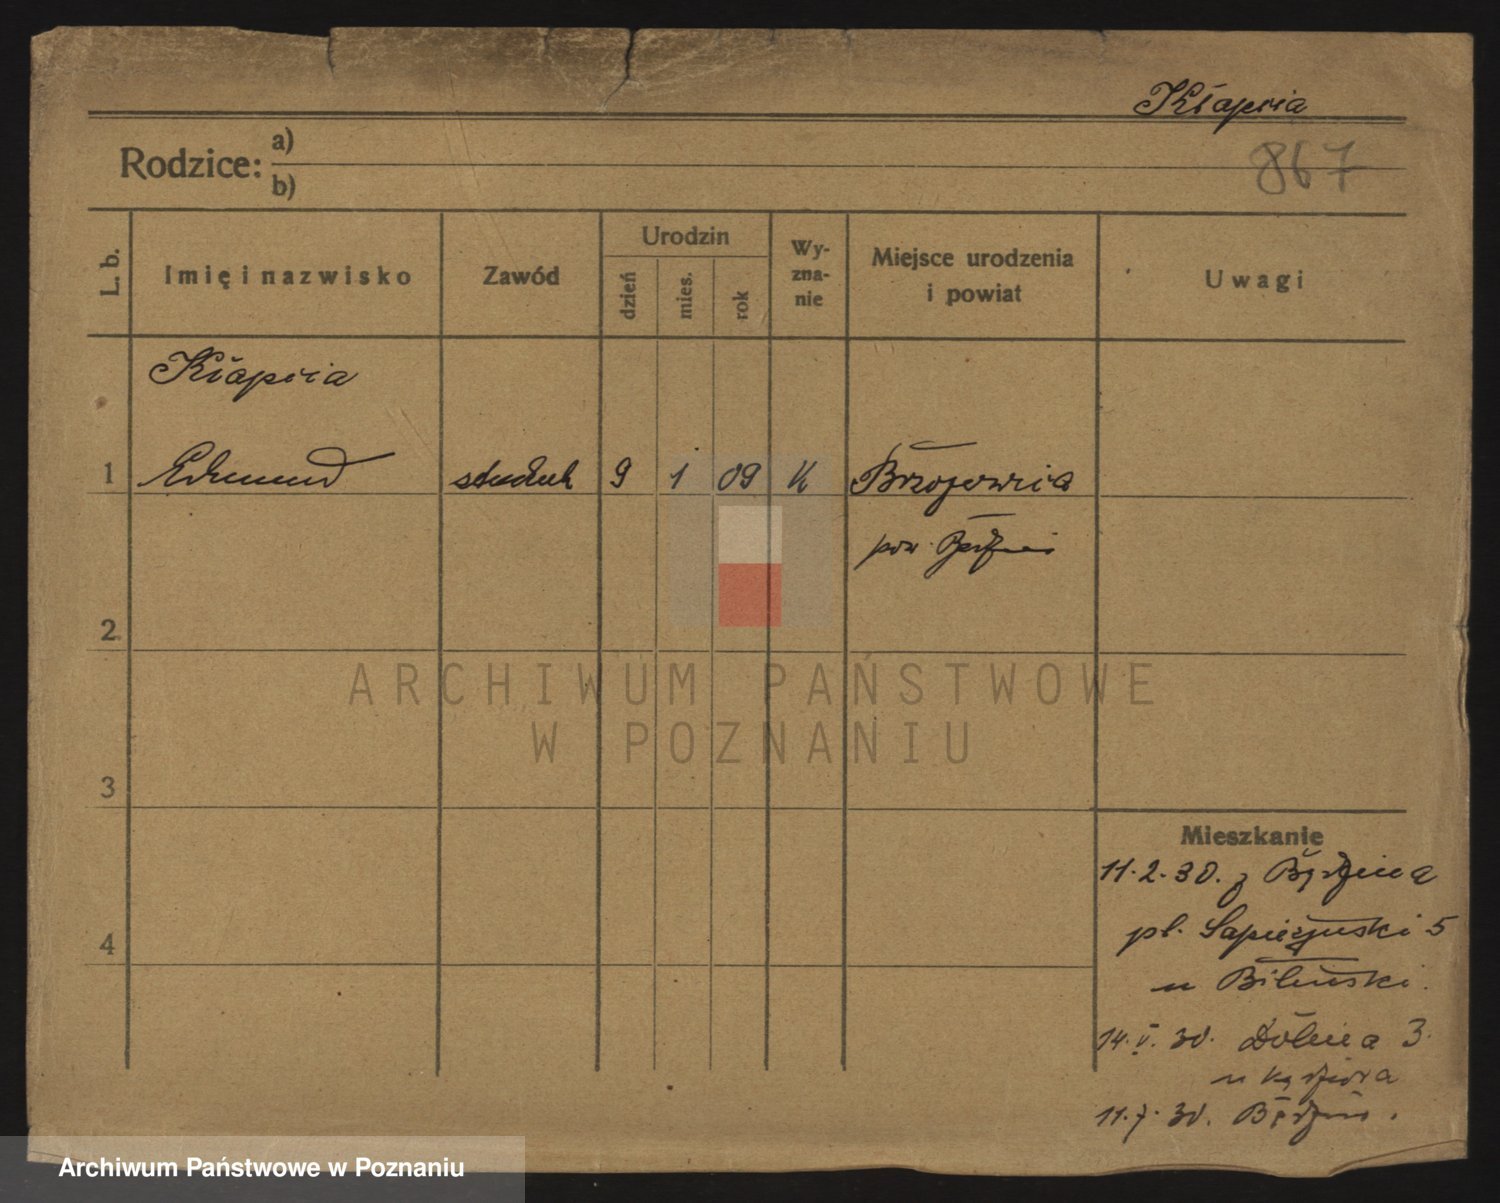 Kłapcia
867
Rodzice: a)
b)
L. b.
Imię i nazwisko
Zawód
Urodzin
dzień
mies.
rok
Wy-
zna-
nie
Miejsce urodzenia
i powiat
Uwagi
Kłapcia
1 Edmund student 9 1 09 K Brzozowica
pow. Będzin
2
ARCHIWUM PAŃSTWOWE
W POZNANIU
3
Mieszkanie
11.2.30. z Będzina
pl. Sapieżyński 5
4
u Biliński.
14.V.30. Dolna 3.
u Kądziora
11.7.30. Będzin.
Archiwum Państwowe w Poznaniu